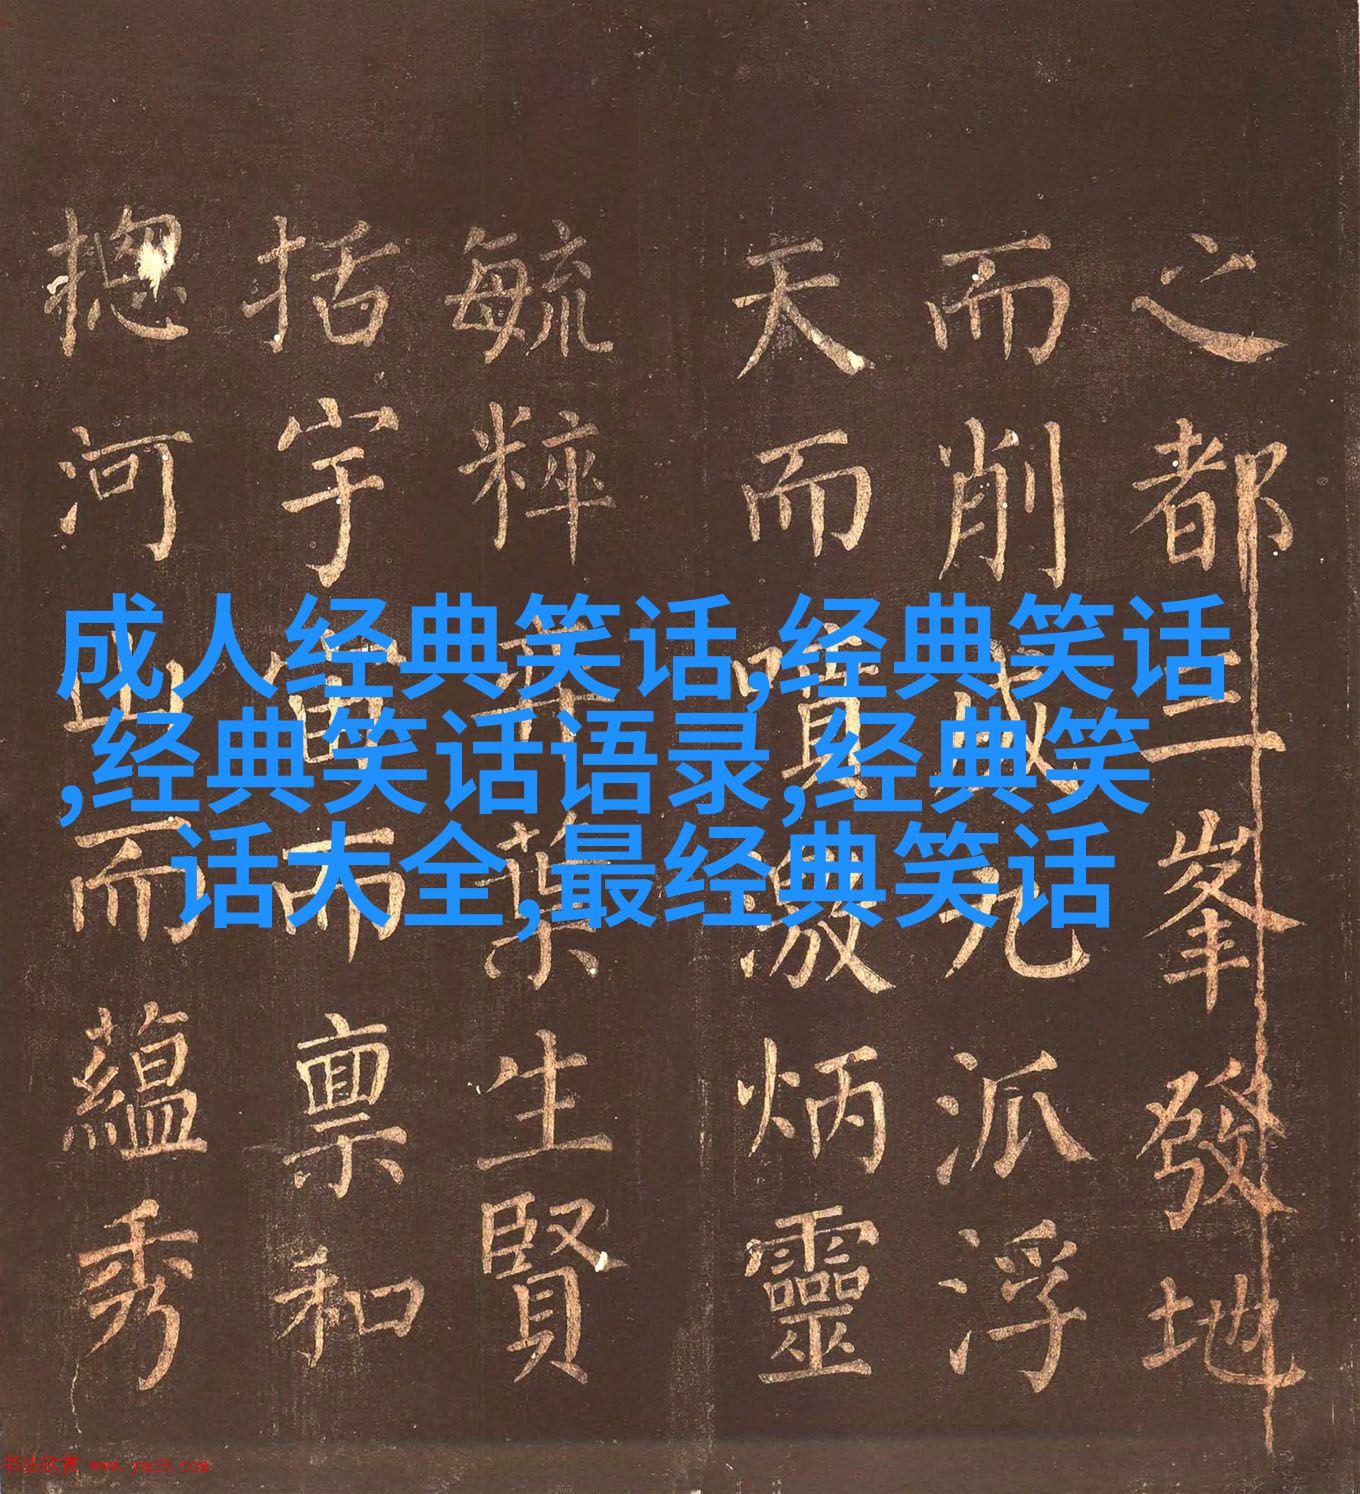 成人经典笑话,经典笑话
,经典笑话语录,经典笑
话大全,最经典笑话
之都三峯發地
而削成九派浮
天而噴激炳靈
毓粹弈葉生賢
括宇宙而稟和
揔河山而蘊秀
书法欣赏 www.yac8.com